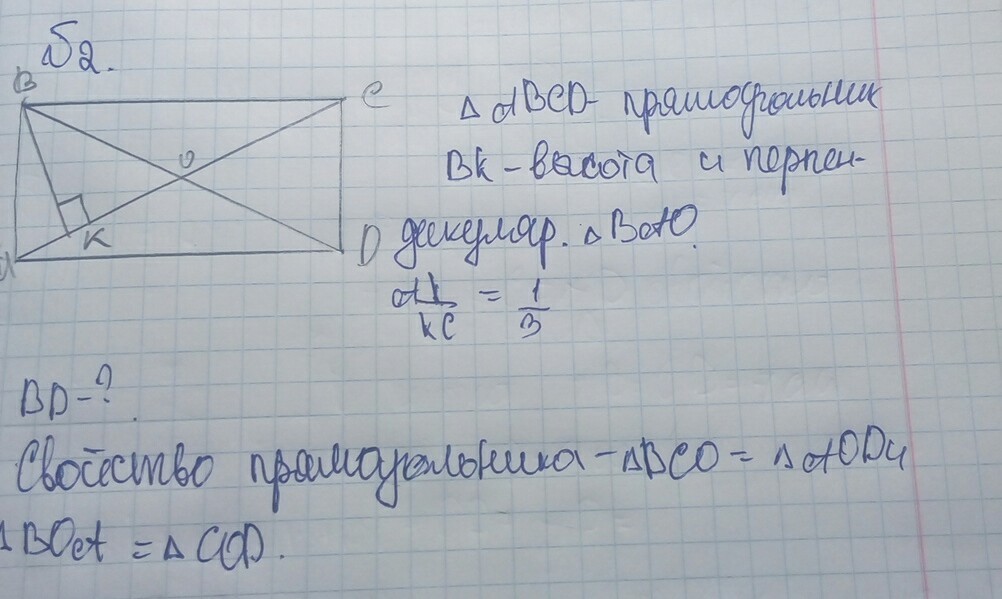 №2.
B
C
O
K
A
D
△ ABCD - прямоугольник
BK - высота и перпен-
дикуляр. △ BAO.
AK/KC = 1/3
BD - ?
Свойство прямоугольника - △BCO = △AOD и
△BOA = △COD.